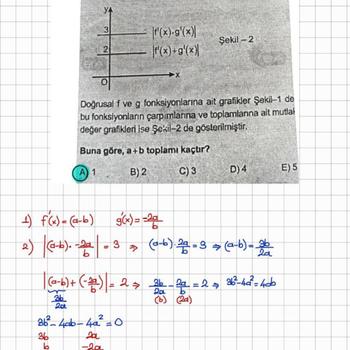 y
3
|f'(x).g'(x)|
Şekil – 2
2
|f'(x)+g'(x)|
x
O
Doğrusal f ve g fonksiyonlarına ait grafikler Şekil-1 de
bu fonksiyonların çarpımlarına ve toplamlarına ait mutlak
değer grafikleri ise Şekil-2 de gösterilmiştir.
Buna göre, a+b toplamı kaçtır?
A) 1 B) 2 C) 3 D) 4 E) 5
1) f'(x) = (a-b) g'(x) = -2a/b
2) |(a-b). -2a/b| = 3 ⇒ (a-b). 2a/b = 3 ⇒ (a-b) = 3b/2a
|(a-b) + (-2a/b)| = 2 ⇒ 3b/2a - 2a/b = 2 ⇒ 3b²-4a² = 4ab
3b/2a (b) (2a)
3b² - 4ab - 4a² = 0
3b 2a
b -2a